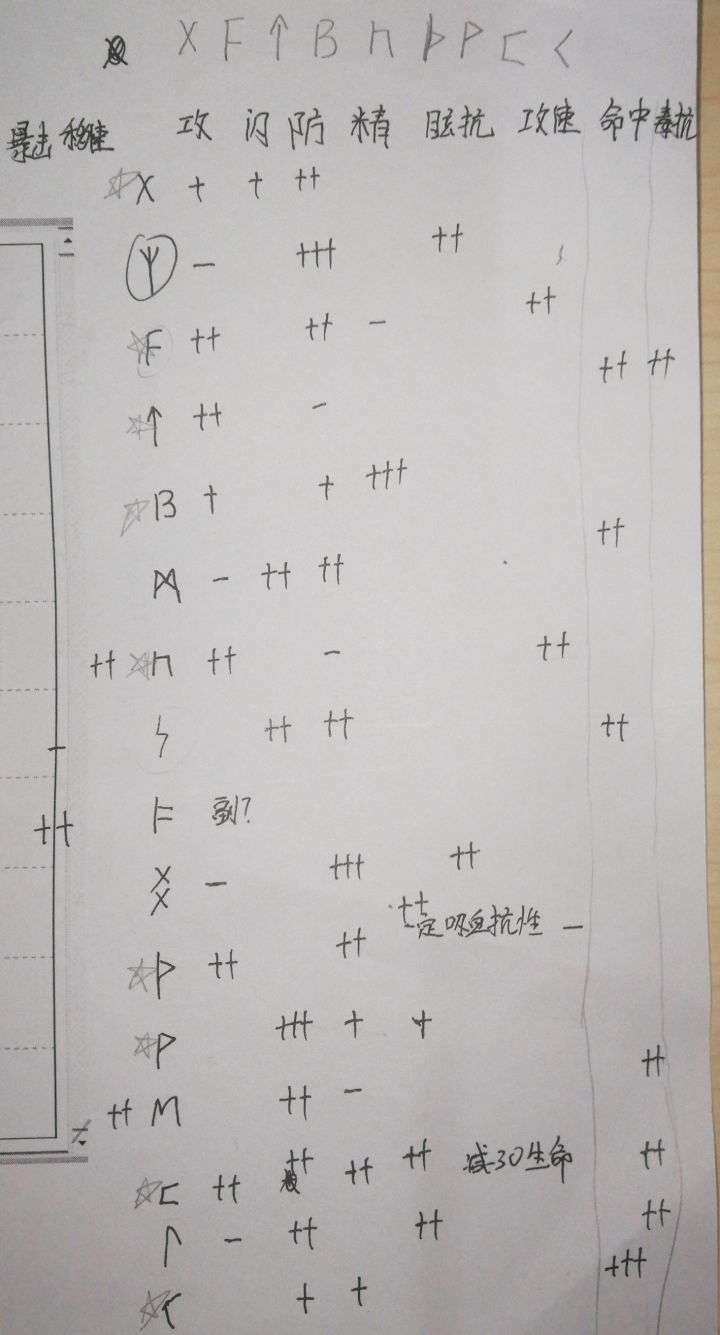 X F ↑ B ᑎ ᚦ P ㄈ <
暴击 移速 攻 闪 防 精 眩抗 攻速 命中 毒抗
☆X + + ++
ᛉ - +++ ++
☆F ++ ++ - ++
☆↑ ++ - ++ ++
☆B + + +++
ᛞ - ++ ++ ++
++ ☆n ++ - ++
- ϟ ++ ++ ++
++ F 副?
XX - +++ ++
☆ᚦ ++ ++ ++ 一定吸血抗性 -
☆P +++ + +
++ M ++ - ++
☆ㄈ ++ ++ ++ ++ 减30生命 ++
ᛚ - ++ ++ ++
☆< + + +++